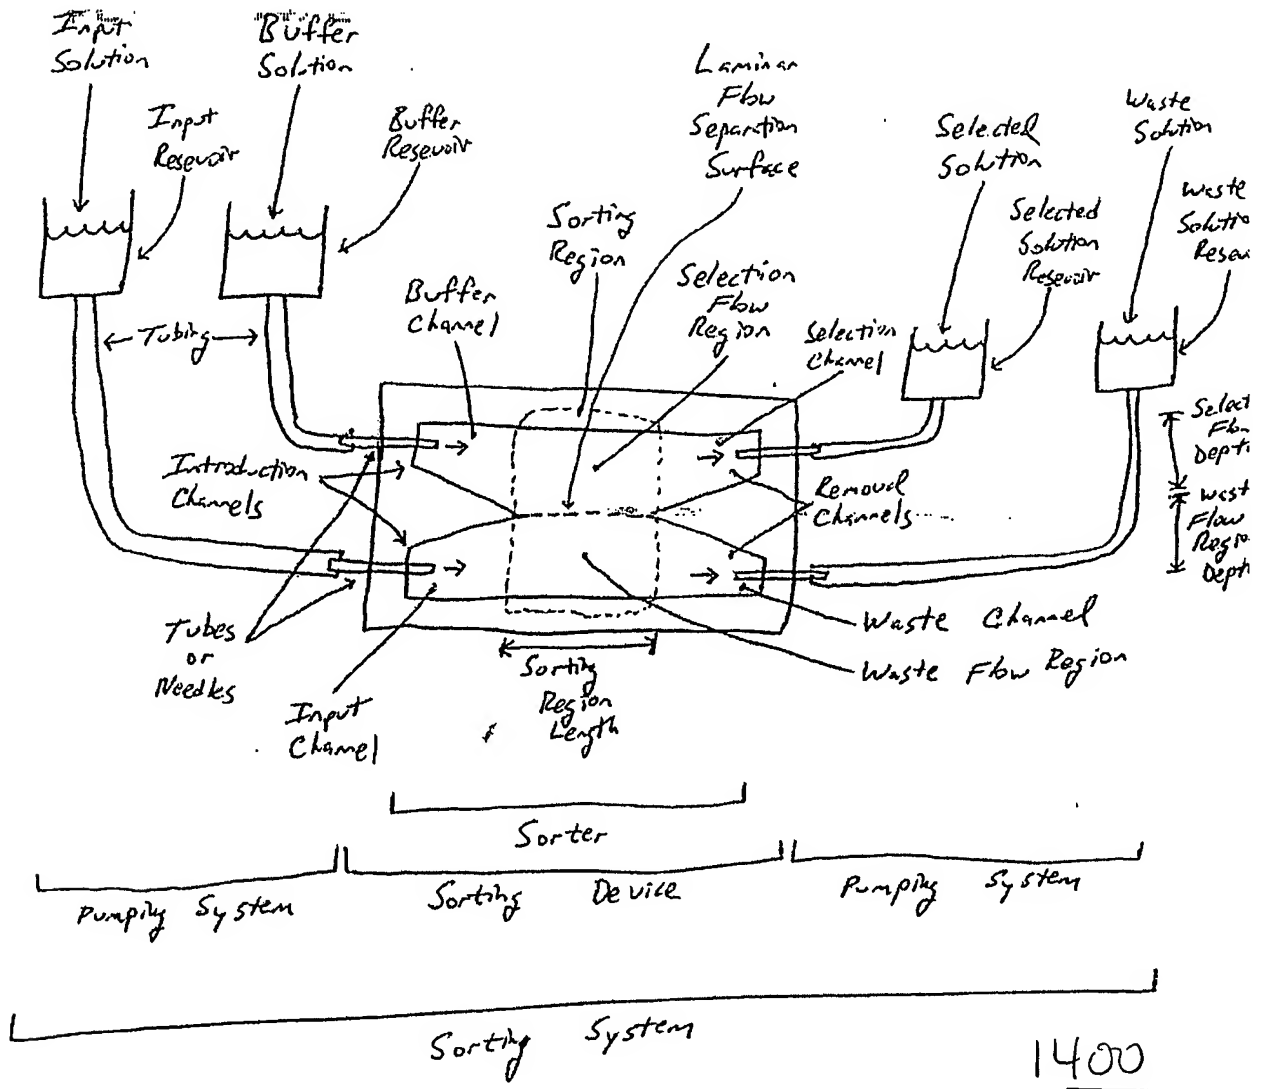 Input
Solution
Buffer
Solution
Input
Resevoir
Buffer
Resevoir
Laminar
Flow
Separation
Surface
Selected
Solution
Waste
Solution
Sorting
Region
Selected
Solution
Resevoir
Waste
Solutio
Resev
Buffer
Channel
Selection
Flow
Region
Selection
Channel
Tubing
Select
Flow
Depth
Introduction
Channels
Removal
Channels
Wast
Flow
Regio
Depth
Tubes
or
Needles
Input
Channel
Sorting
Region
Length
Waste Channel
Waste Flow Region
Sorter
Pumping System
Sorting Device
Pumping System
Sorting System
1400